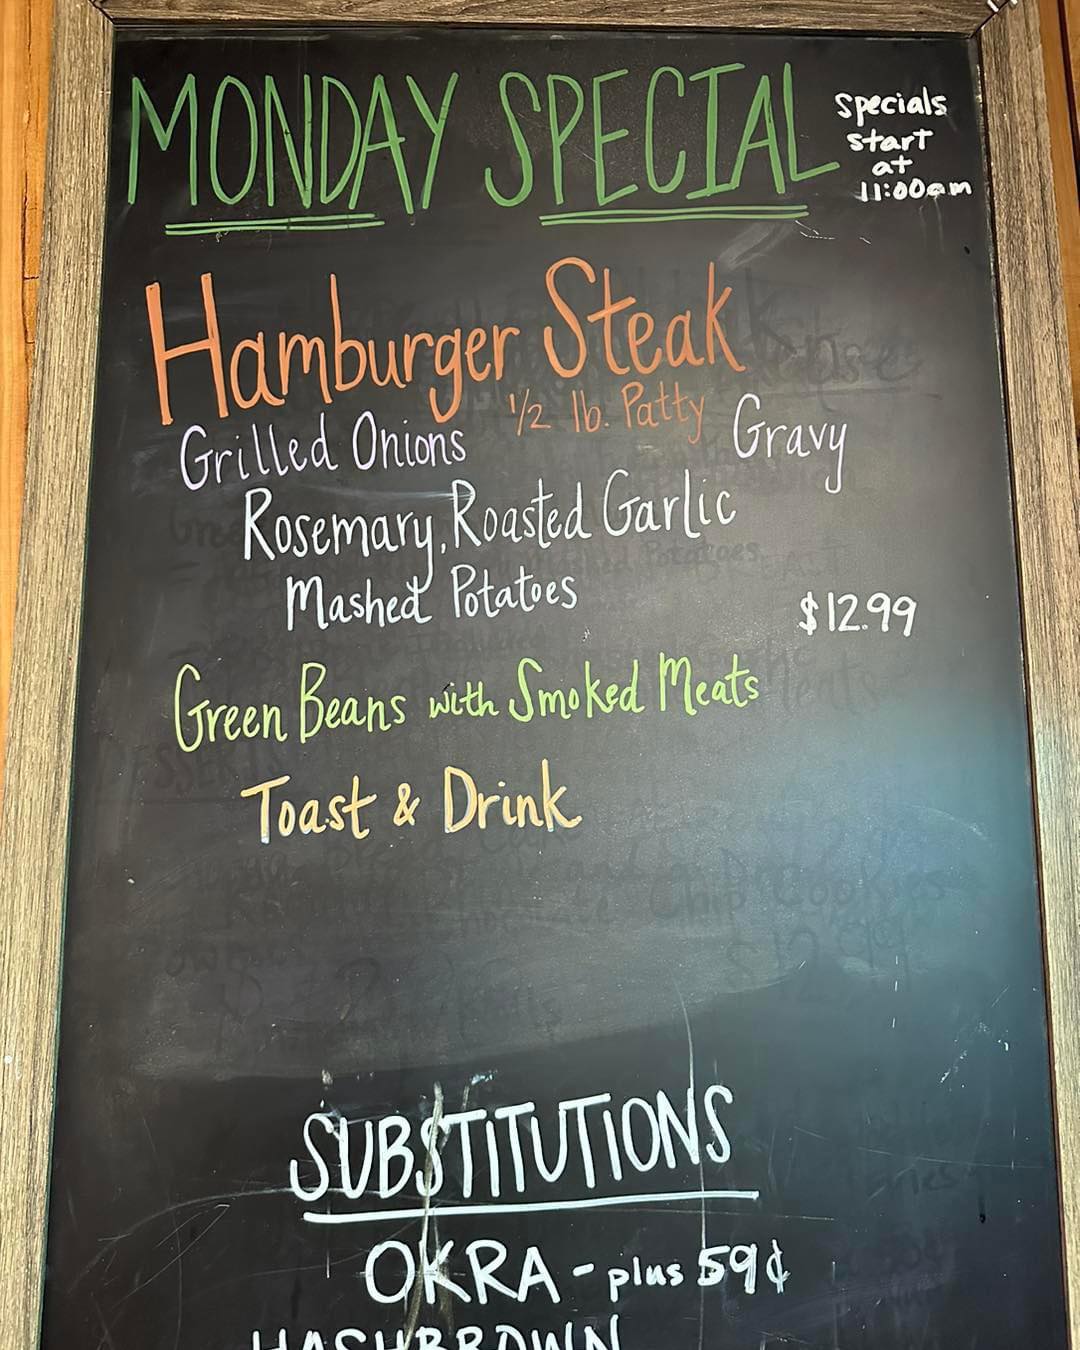 MONDAY SPECIAL
Specials
start
at
11:00am
Hamburger Steak
1/2 lb. Patty
Grilled Onions
Gravy
Rosemary, Roasted Garlic
Mashed Potatoes
$12.99
Green Beans with Smoked Meats
Toast & Drink
SUBSTITUTIONS
OKRA - plus 59¢
HASHBROWN